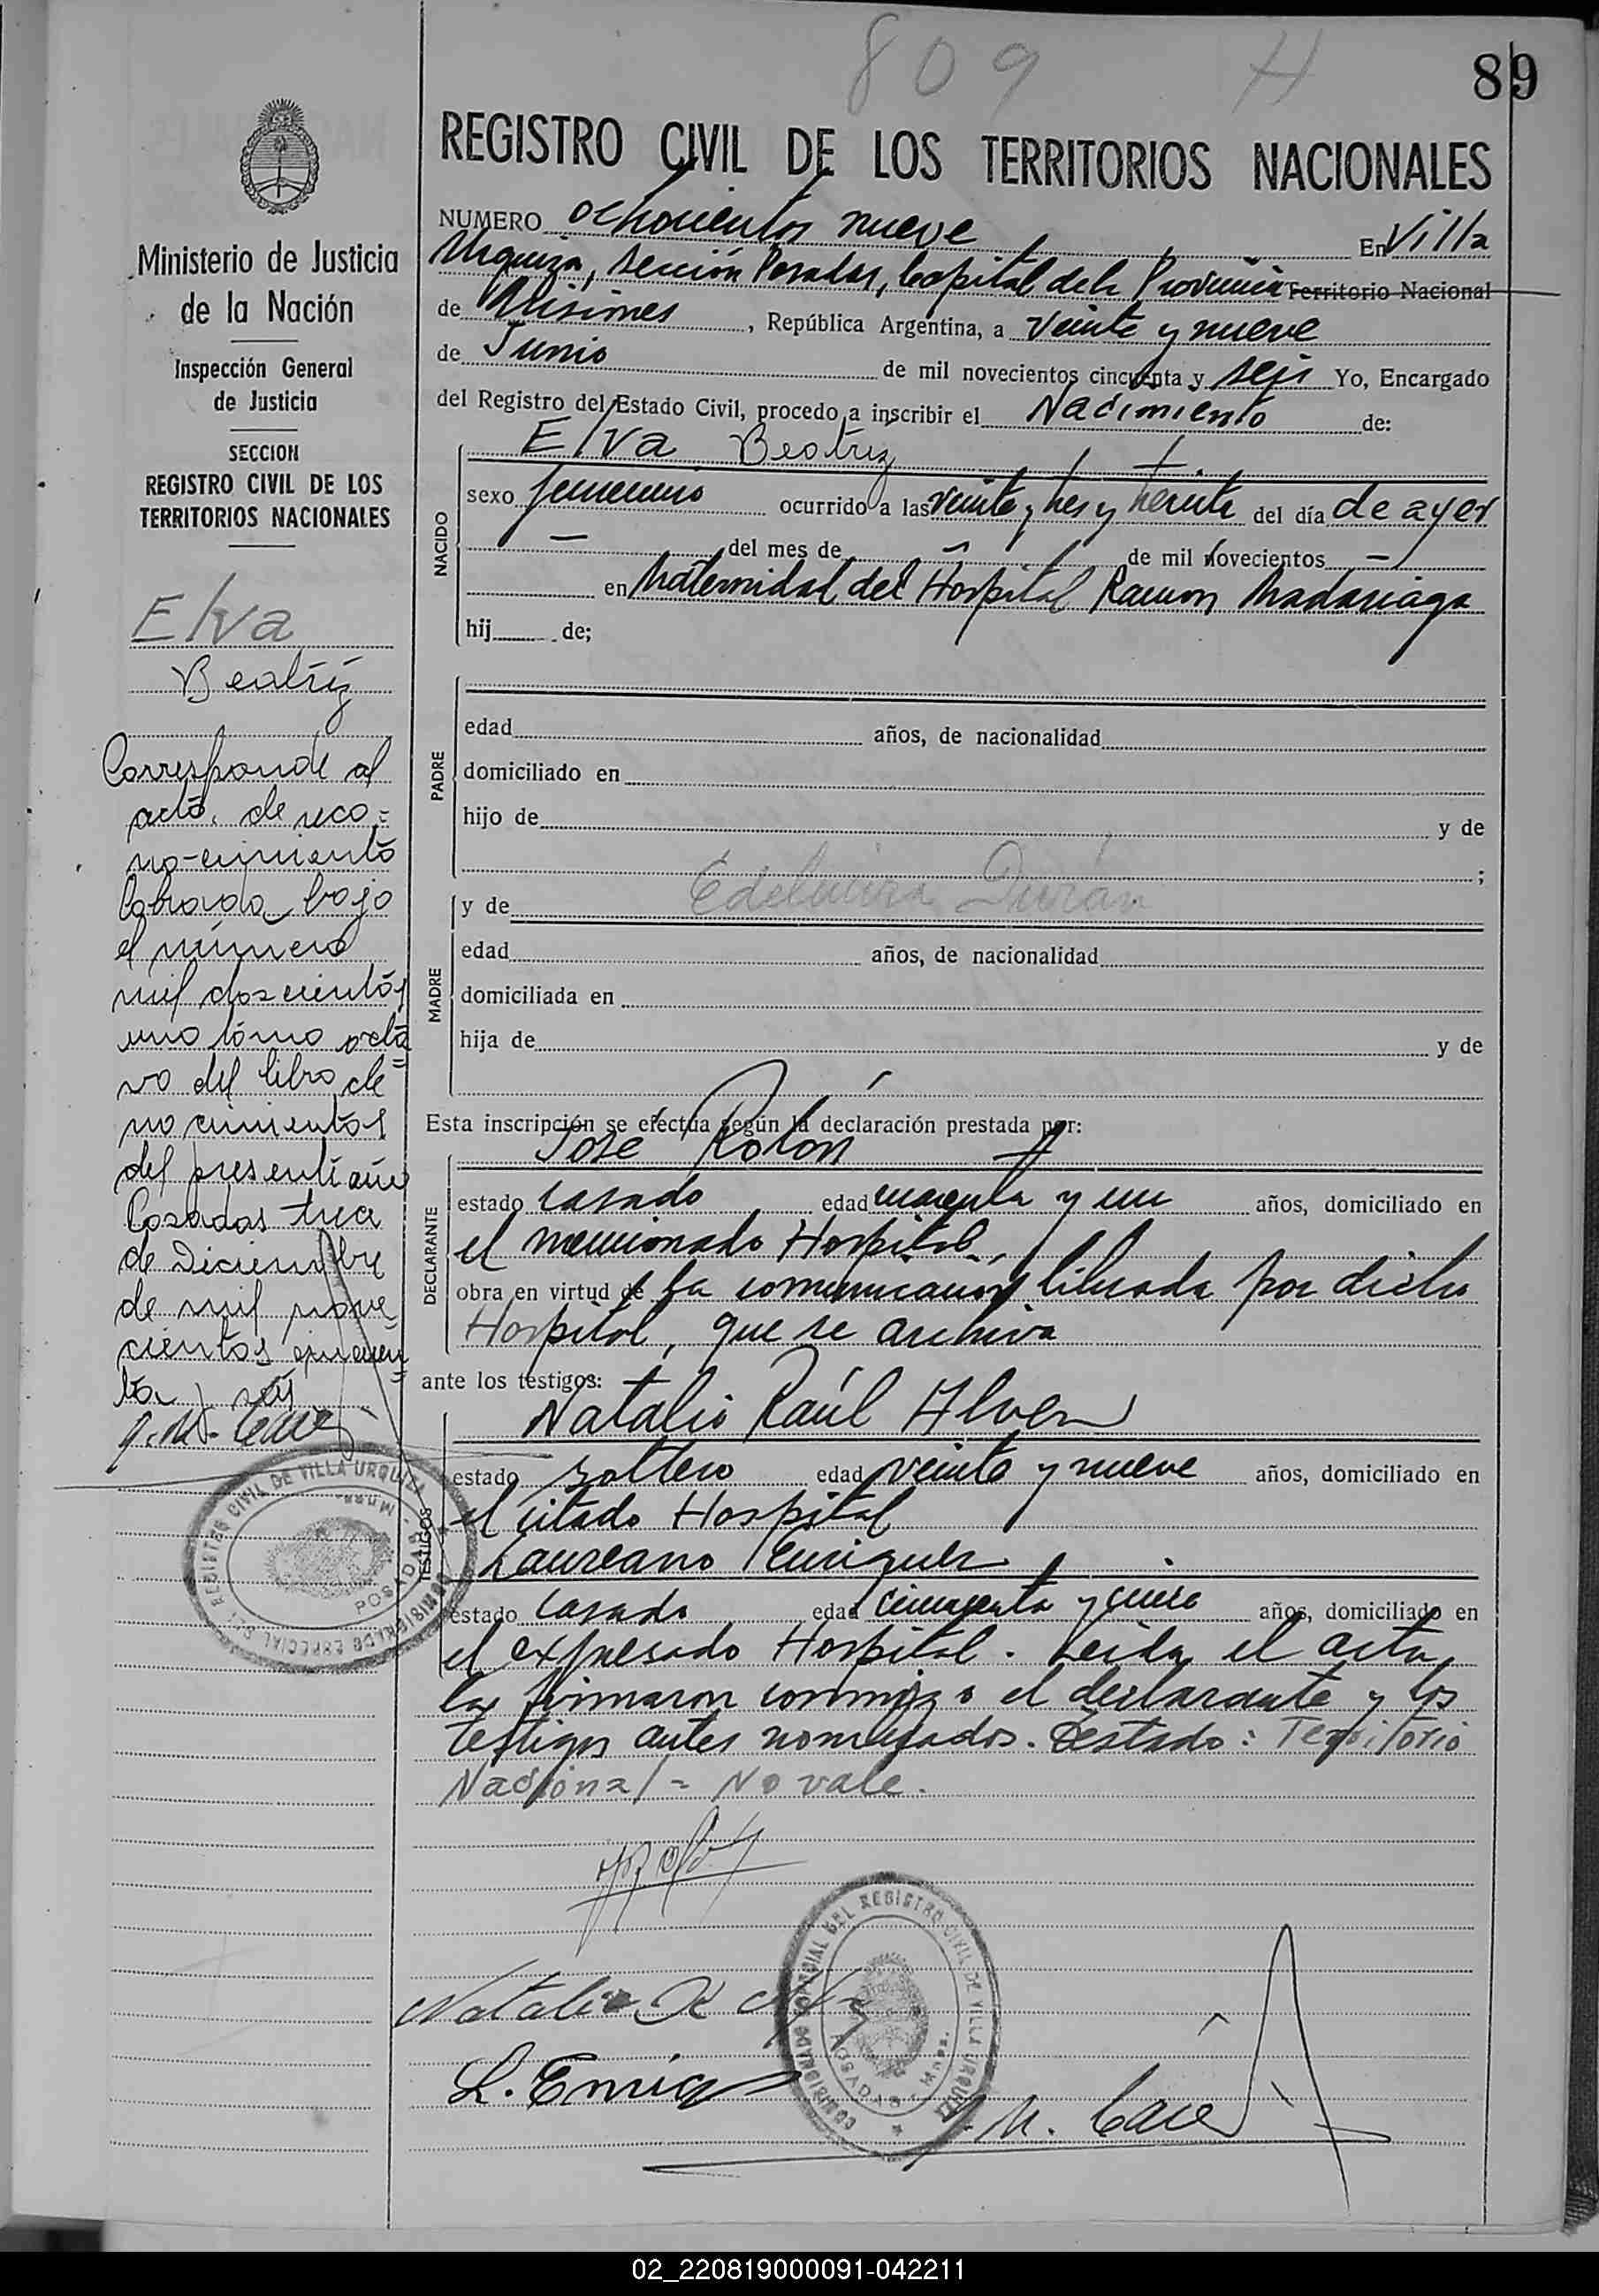 809 H 89
REGISTRO CIVIL DE LOS TERRITORIOS NACIONALES
NUMERO ochocientos nueve En Villa
Urquiza, sección Posadas, Capital de la Provincia Territorio Nacional
de Misiones, República Argentina, a veinte y nueve
de Junio de mil novecientos cincuenta y seis Yo, Encargado
del Registro del Estado Civil, procedo a inscribir el Nacimiento de:
NACIDO
Elva Beatriz
sexo femenino ocurrido a las veinte y tres y treinta del día de ayer
— del mes de — de mil novecientos —
en Maternidad del Hospital Ramon Madariaga
hij de;
PADRE
edad años, de nacionalidad
domiciliado en
hijo de y de
;
MADRE
y de Edelmira Durán
edad años, de nacionalidad
domiciliada en
hija de y de
Esta inscripción se efectúa según la declaración prestada por:
DECLARANTE
José Rolón
estado casado edad cuarenta y un años, domiciliado en
el mencionado Hospital
obra en virtud de la comunicación librada por dicho
Hospital, que se archiva
ante los testigos:
TESTIGOS
Natalio Raúl
estado soltero edad veinte y nueve años, domiciliado en
el citado Hospital
Laureano Enriquez
estado casado edad cincuenta y años, domiciliado en
el expresado Hospital. Leida el acta,
la firmaron conmigo el declarante y los
testigos antes nombrados. Testado: Territorio
Nacional = No vale.
Natalio R
L. Enriq
COMISIONADO ESPECIAL DEL REGISTRO CIVIL DE VILLA URQUIZA
POSADAS - Mnes.
Ministerio de Justicia
de la Nación
Inspección General
de Justicia
SECCION
REGISTRO CIVIL DE LOS
TERRITORIOS NACIONALES
Elva
Beatriz
Corresponde al
acta de reco=
no-cimiento
labrada bajo
el número
mil doscientos
uno tomo octa=
vo del libro de
nacimientos
del presente año
Posadas trece
de Diciembre
de mil nove=
cientos cincuen=
ta y seis
COMISIONADO ESPECIAL DEL REGISTRO CIVIL DE VILLA URQUIZA
POSADAS - Mnes.
02_220819000091-042211